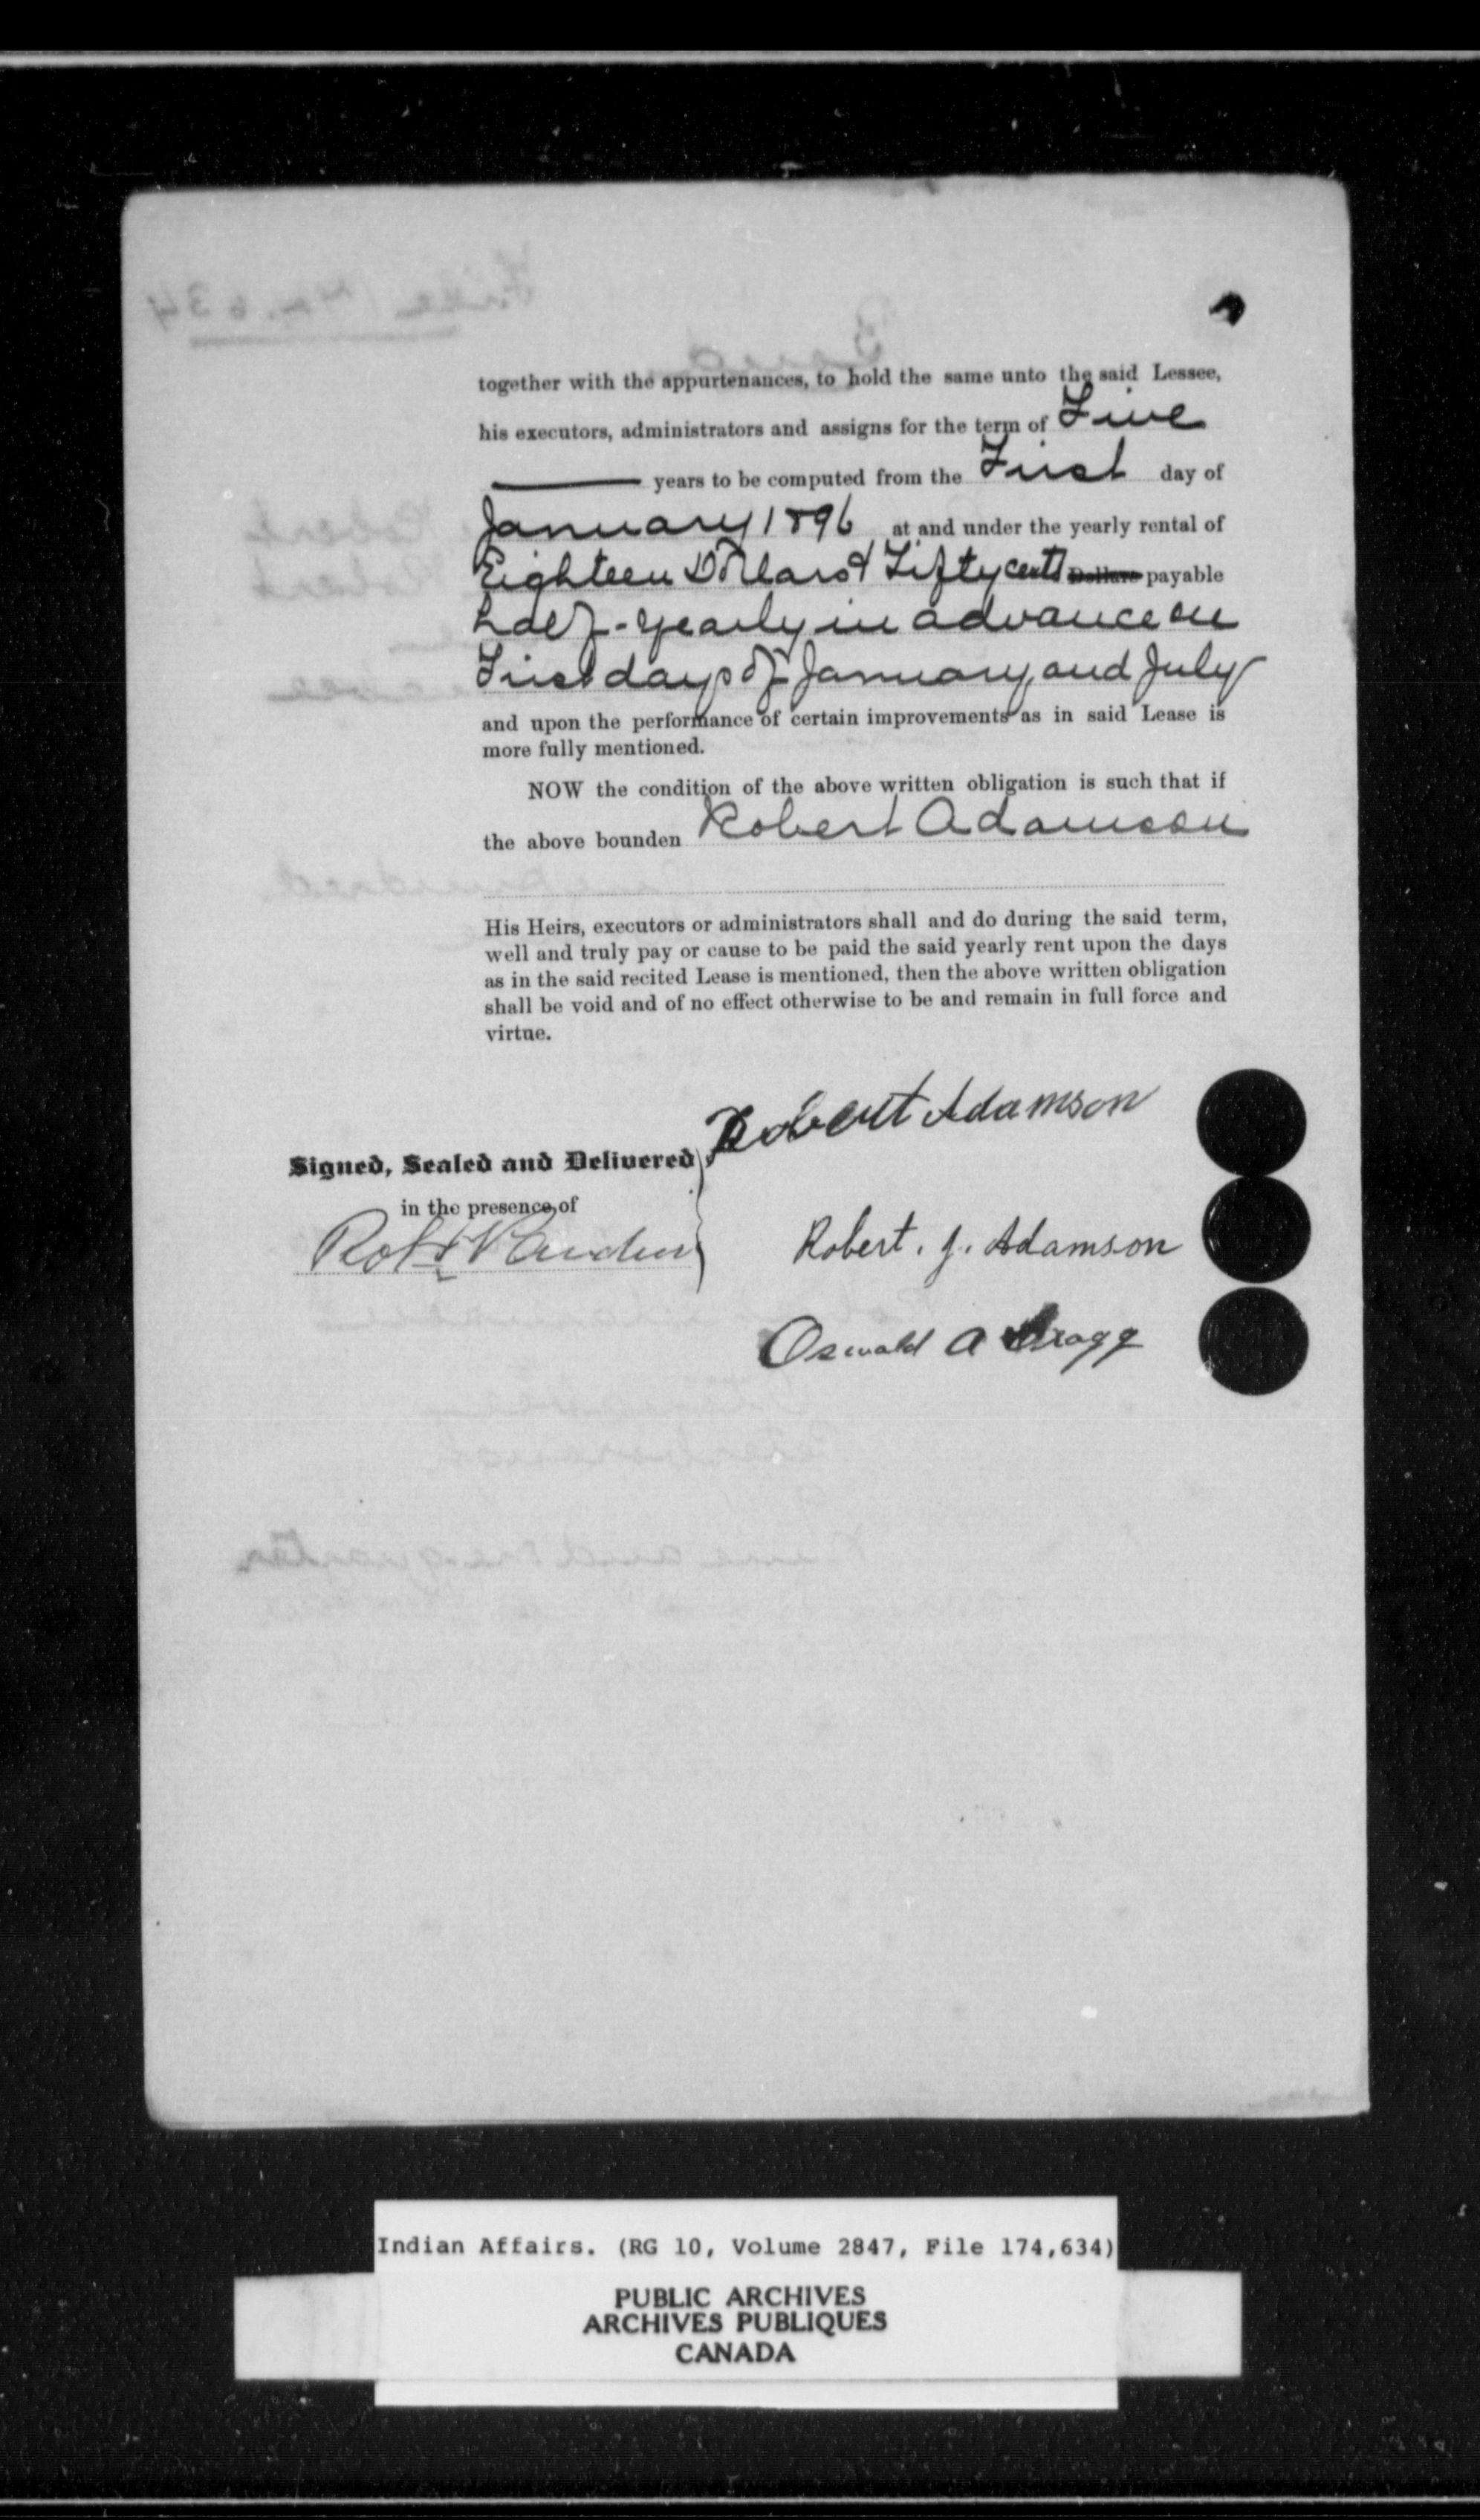 together with the appurtenances, to hold the same unto the said Lessee,
his executors, administrators and assigns for the term of Five
years to be computed from the First day of
January 1896 at and under the yearly rental of
Eighteen Dollars & Fifty cents Dollars payable
half-yearly in advance on
First days of January and July
and upon the performance of certain improvements as in said Lease is
more fully mentioned.
NOW the condition of the above written obligation is such that if
the above bounden Robert Adamson
His Heirs, executors or administrators shall and do during the said term,
well and truly pay or cause to be paid the said yearly rent upon the days
as in the said recited Lease is mentioned, then the above written obligation
shall be void and of no effect otherwise to be and remain in full force and
virtue.
Robert Adamson
Signed, Sealed and Delivered
in the presence of
Robt
Robert. J. Adamson
Oswald A Gragg
Indian Affairs. (RG 10, Volume 2847, File 174,634)
PUBLIC ARCHIVES
ARCHIVES PUBLIQUES
CANADA